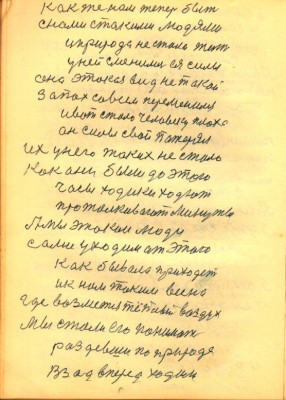 Как же нам тепер быт
с нами стакими людями
и природа не стала тот
у ней сменимися сили
она этокая вид не такой
Запах савсем переминимя
и вот стало человеку плоха
он сили свои патерял
их у него таких не стало
Как ани были до этого
часы ходики ходют
проталкивают минуты
А мы этакии люди
сами уходим от этого
как бывала приходет
и к нам такии весна
где возметя тёплый воздух
Мы стали его понимат
раздевши по природе
Взад вперед ходим